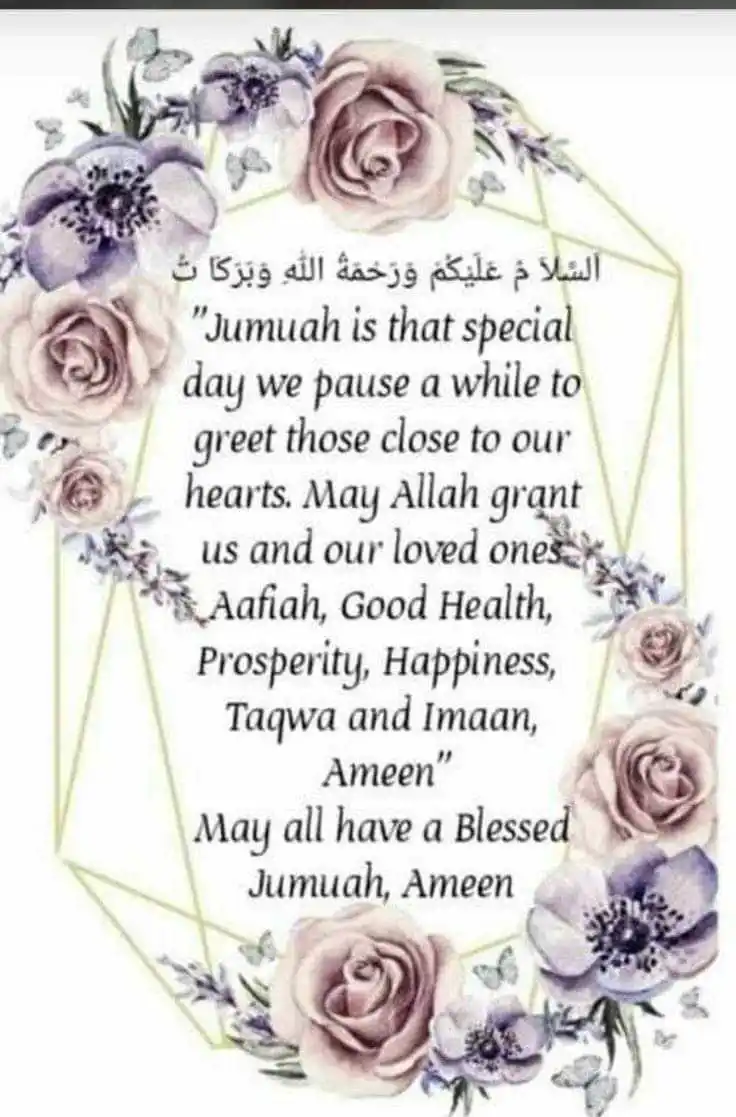 اَلسَّلاَ مُ عَلَيْكُمْ وَرَحْمَةُ اللهِ وَبَرَكَا تُ
"Jumuah is that special
day we pause a while to
greet those close to our
hearts. May Allah grant
us and our loved ones
Aafiah, Good Health,
Prosperity, Happiness,
Taqwa and Imaan,
Ameen"
May all have a Blessed
Jumuah, Ameen